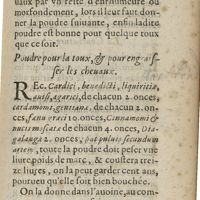 uaux par vn reste d'enrhumeure ou
morfondement, lors il leur faut don-
ner la poudre suiuante, enfin ladite
poudre est bonne pour quelque toux
que ce soit.
Poudre pour la toux, & pour engrais-
ser les cheuaux.
REC. Cardici, benedicti, liquiritiæ
agarici, de chacun 2. onces,
cardamomi, gentianæ, de chacun 2. on-
ces, fœnugræci 10. onces, Cinnamomi &
nucis moscatæ de chacun 4. onces, Dia-
galanga 2. onces, fiat puluis secundum
artem, toute la poudre doit peser vne
liure, poids de marc, & coustera trei-
ze liures, on la peut garder cent ans,
pourueu qu'elle soit bien bouchée.
On la donne dans l'auoine, au com-